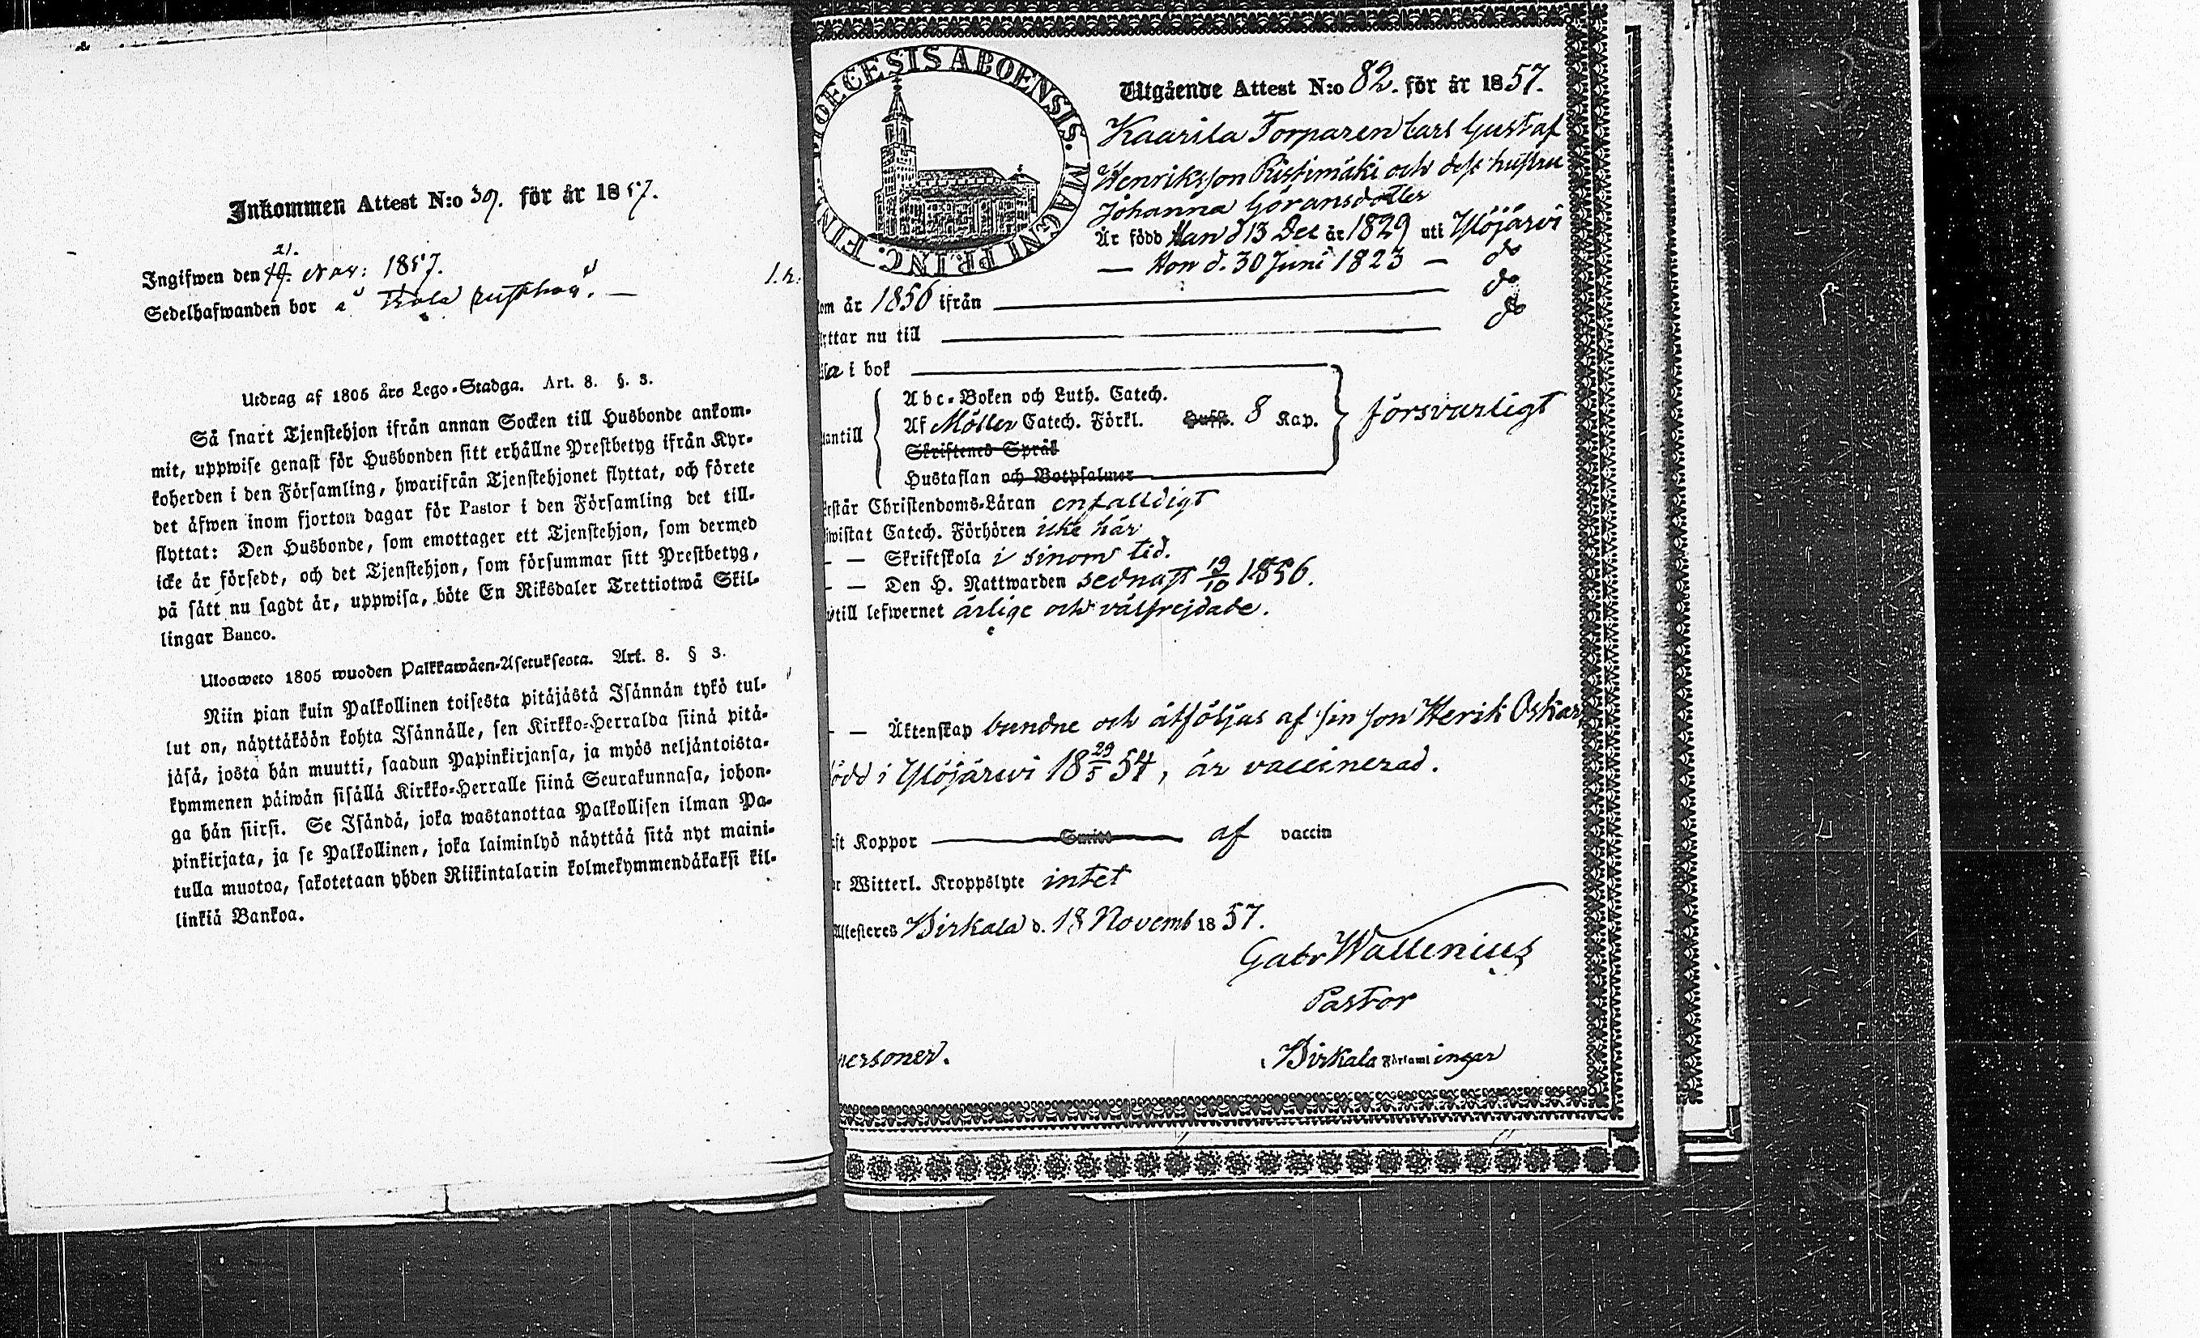 Inkommen Attest N:o 39. för år 1857.
21.
Ingifwen den 19. Nov: 1857.
Sedelhafwanden bor å
Utdrag af 1805 års Lego-Stadga. Art. 8. §. 3.
Så snart Tjenstehjon ifrån annan Socken till Husbonde ankom-
mit, uppwise genast för Husbonden sitt erhållne Prestbetyg ifrån Kyr-
koherden i den Församling, hwarifrån Tjenstehjonet flyttat, och förete
det äfwen inom fjorton dagar för Pastor i den Församling det till-
flyttat: Den Husbonde, som emottager ett Tjenstehjon, som dermed
icke är försedt, och det Tjenstehjon, som försummar sitt Prestbetyg,
på sätt nu sagdt är, uppwisa, böte En Riksdaler Trettiotwå Skil-
lingar Banco.
Uloswето 1805 wuoden Palkkawäen-Asetuksesta. Art. 8. § 3.
Niin pian kuin Palkollinen toisesta pitäjästä Isännän tykö tul-
lut on, näyttäköön kohta Isännälle, sen Kirkko-Herralda siinä pitä-
jäsä, josta hän muutti, saadun Papinkirjansa, ja myös neljäntoista-
kymmenen päiwän sisällä Kirkko-Herralle siinä Seurakunnasa, johon-
ga hän siirsi. Se Isändä, joka wastanottaa Palkollisen ilman Pa-
pinkirjata, ja se Palkollinen, joka laiminlyö näyttää sitä nyt maini-
tulla muotoa, sakotetaan yhden Riikintalarin kolmekymmendäkaksi kil-
linkiä Bankoa.
DIOECESIS ABOENSIS. MAGNI PRINC. FIN
Utgående Attest N:o 82. för år 1857.
Kaarila Torparen Carl Gustaf
Henriksson Ristimäki och dess hustru
Johanna Göransdotter
Är född Han d 13 Dec år 1829 uti Ylöjärvi
— Hon d. 30 Juni 1823 — do
om år 1856 ifrån do
yttar nu till do
sa i bok
Abc-Boken och Luth. Catech.
antill Af Möller Catech. Förkl. Husst. 8 Kap. försvarligt
Skriftenes Språk
Hustaflan och Botpsalmer
rstår Christendoms-Läran enfalldigt
iwistat Catech. Förhören icke här
— — Skriftskola i sinom tid.
— — Den H. Nattwarden sednast 19/10 1856.
till lefwernet ärlige och välfrejdade.
— — Äktenskap bundne och åtföljas af sin son Henrik Oskar,
född i Ylöjärwi 18 29/5 54, är vaccinerad.
ft Koppor Smitt af vaccin
r Witterl. Kroppslyte intet
Attesteres Birkala d. 18 Novemb 1857.
Gabr Wallenius
Pastor
personer.
Birkala Församlingar